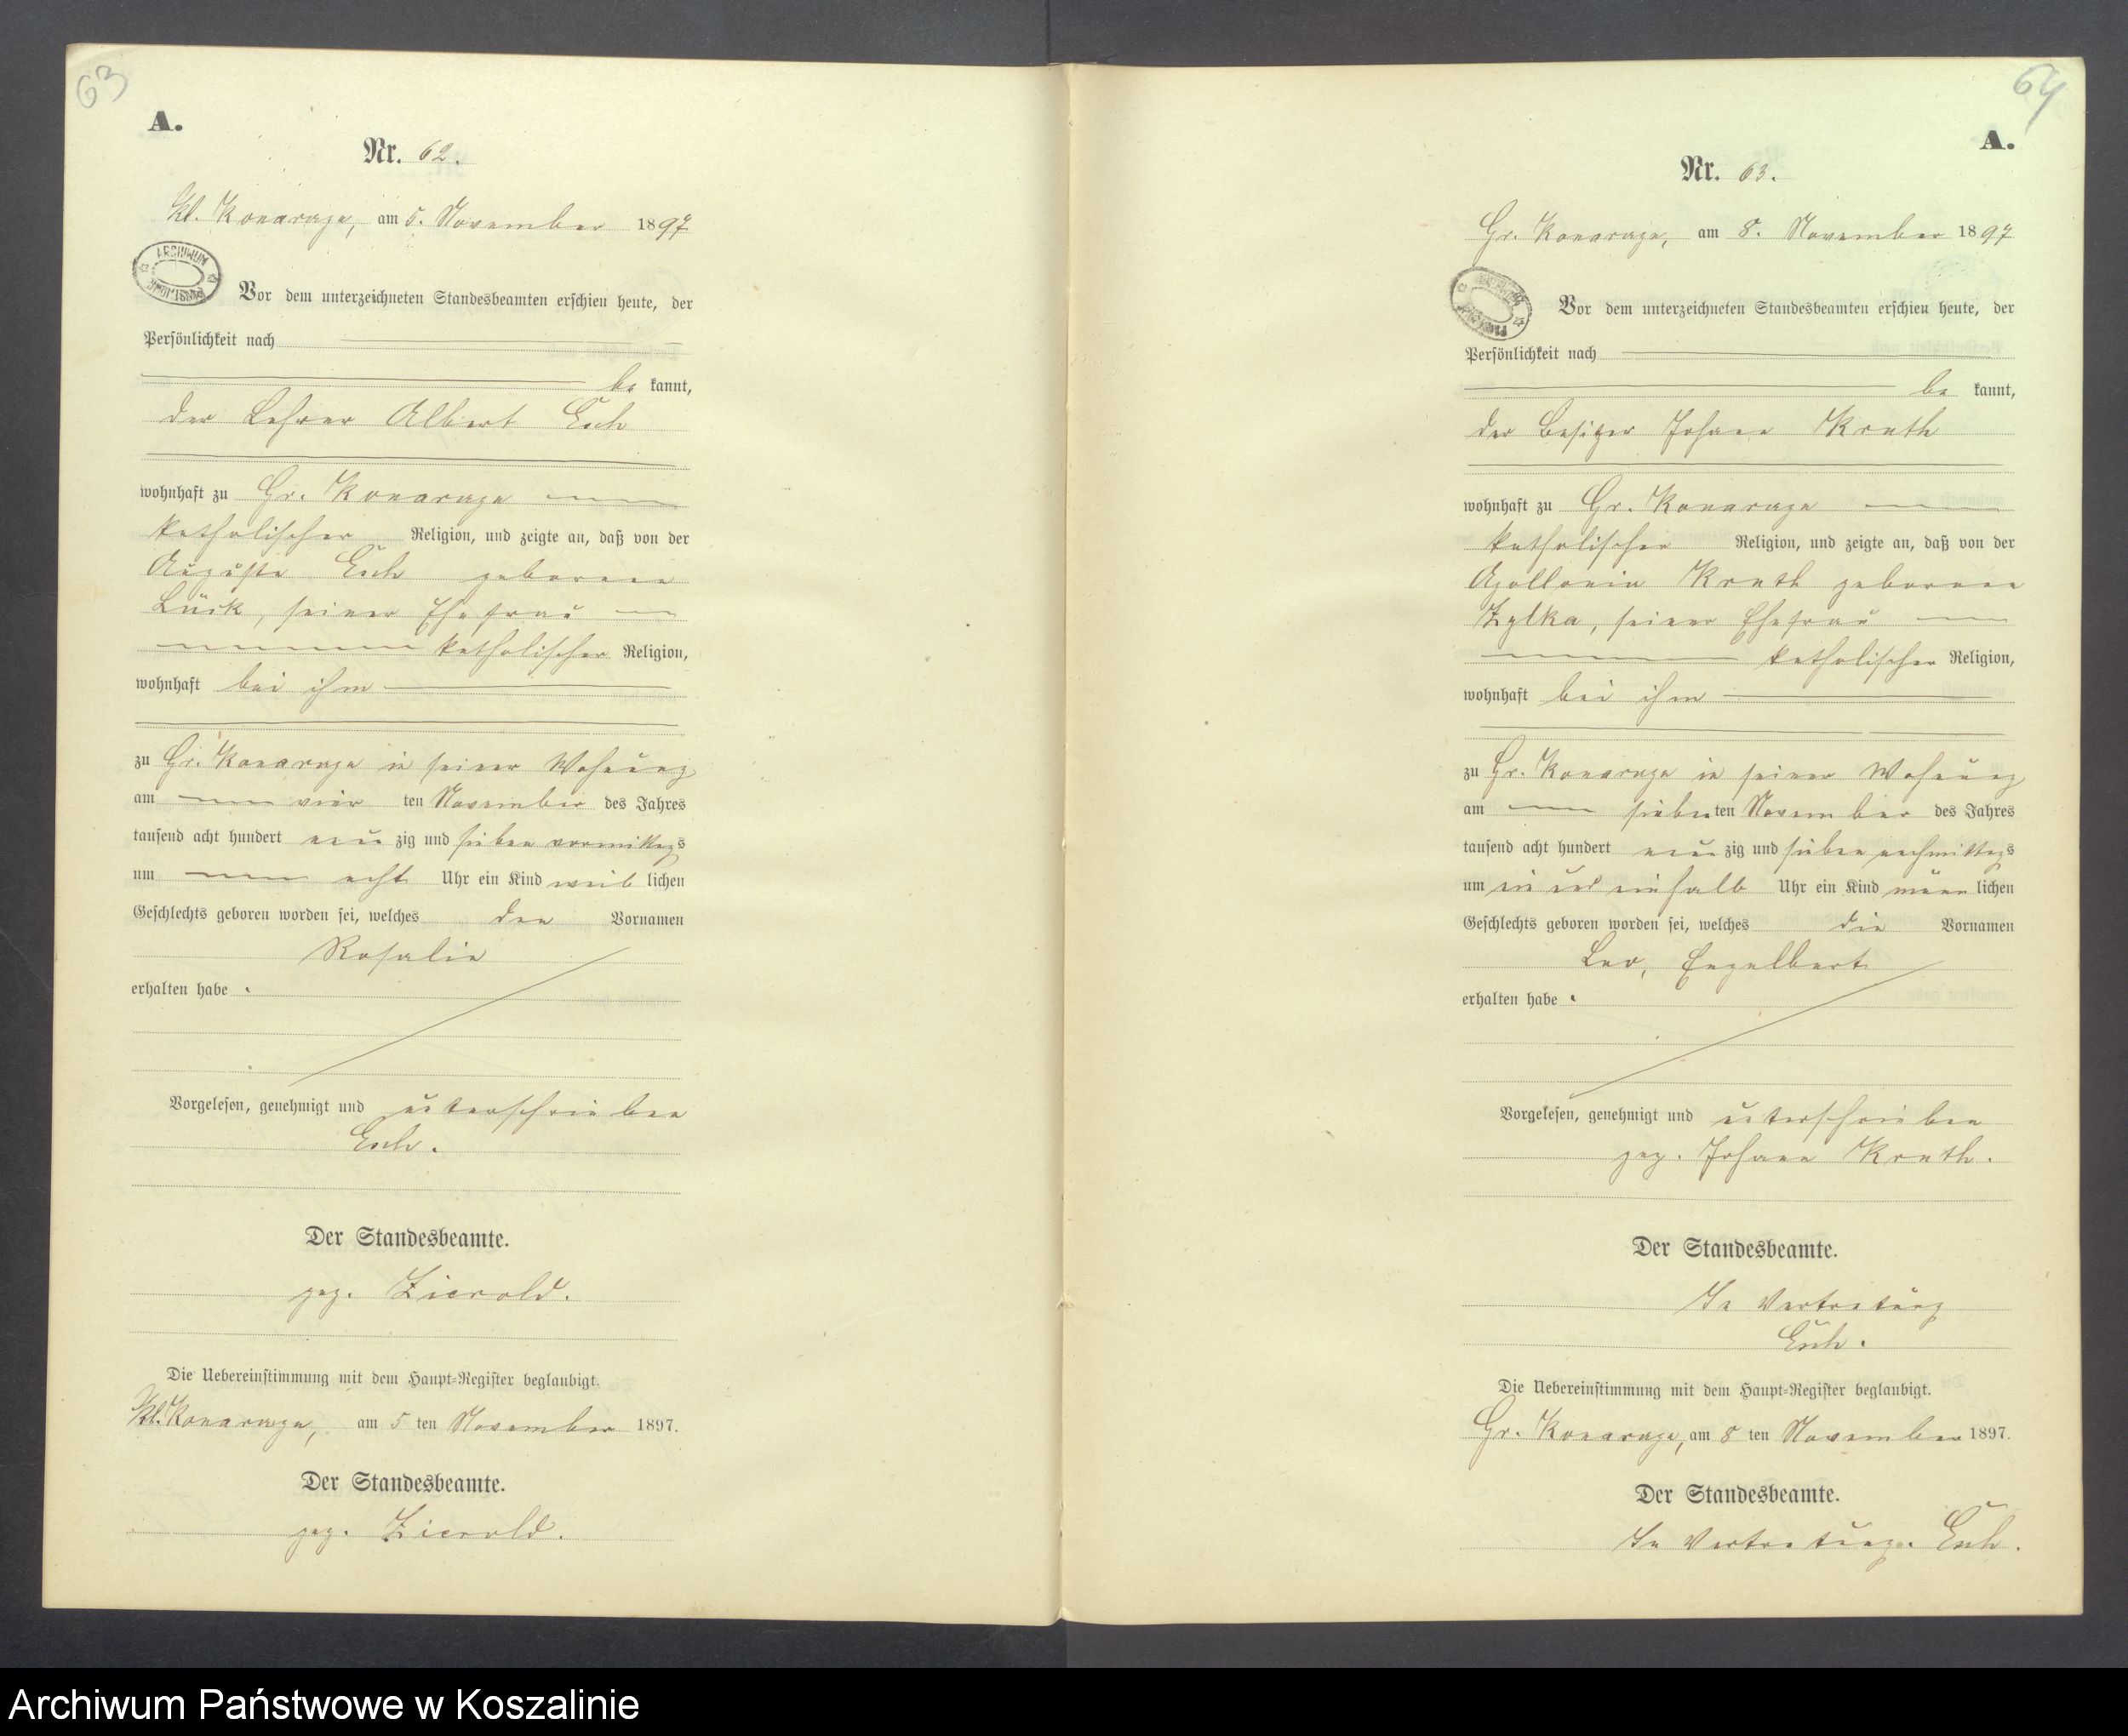 63
A.
Nr. 62.
Kl. Konarzyn, am 5. November 1897
ARCHIWUM
Vor dem unterzeichneten Standesbeamten erschien heute, der
Persönlichkeit nach
be kannt,
der Lehrer Albert
wohnhaft zu Gr. Konarzyn
katholischer Religion, und zeigte an, daß von der
Auguste geborene
Lück, seiner Ehefrau
katholischer Religion,
wohnhaft bei ihm
zu Gr. Konarzyn in seiner Wohnung
am vier ten November des Jahres
tausend acht hundert neun zig und sieben vormittags
um acht Uhr ein Kind weib lichen
Geschlechts geboren worden sei, welches den Vornamen
Rosalie
erhalten habe.
Vorgelesen, genehmigt und unterschrieben
Der Standesbeamte.
gez. Zierold.
Die Uebereinstimmung mit dem Haupt-Register beglaubigt.
Kl. Konarzyn, am 5 ten November 1897.
Der Standesbeamte.
gez. Zierold.
64
A.
Nr. 63.
Gr. Konarzyn, am 8. November 1897
Vor dem unterzeichneten Standesbeamten erschien heute, der
Persönlichkeit nach
be kannt,
der Besitzer Johann Knuth
wohnhaft zu Gr. Konarzyn
katholischer Religion, und zeigte an, daß von der
Apollonia Knuth geborene
Zylka, seiner Ehefrau
katholischer Religion,
wohnhaft bei ihm
zu Gr. Konarzyn in seiner Wohnung
am sieben ten November des Jahres
tausend acht hundert neun zig und sieben nachmittags
um ein und einhalb Uhr ein Kind männ lichen
Geschlechts geboren worden sei, welches die Vornamen
Leo, Engelbert
erhalten habe.
Vorgelesen, genehmigt und unterschrieben
gez. Johann Knuth.
Der Standesbeamte.
In Vertretung
Die Uebereinstimmung mit dem Haupt-Register beglaubigt.
Gr. Konarzyn, am 8 ten November 1897.
Der Standesbeamte.
In Vertretung.
Archiwum Państwowe w Koszalinie